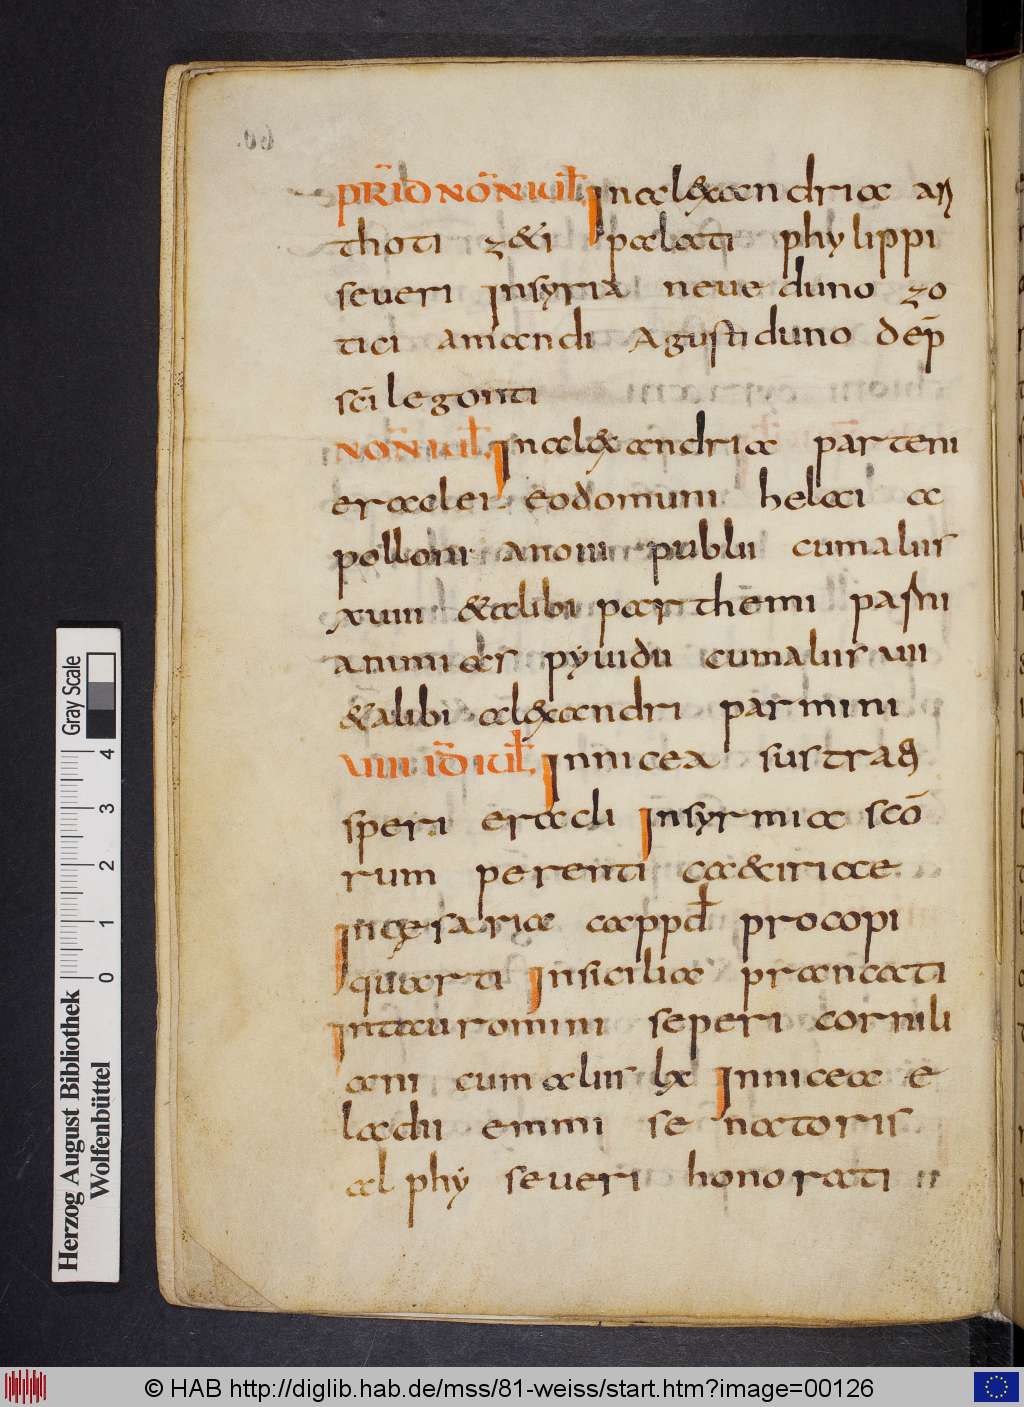 PR̄ID NON̄ IUL̄ In alexandria an
thoti zeti palati phylippi
seueri Insyria neueduno zo
tici amandi Agustiduno dep̄
sc̄i legonti
NON̄ IUL̄ In alexandria parteni
eraclei eodomuni helaci a
polloni anouii publii cum aliis
xuiii et alibi parthemi pasni
animiar pyuidii cum aliis uiii
et alibi alexandri parmini
UIII ID̄ IUL̄ In nicea sustran
speri eracli Insyrmia scō
rum perenti caetiriace
In cesaria cappd̄ procopi
quarti In sicilia prancati
In tauromini seperi cornili
ani cum aliis lx In nicea e
ladii emmi senatoris
alphy seueri honorati
Herzog August Bibliothek
Wolfenbüttel
Gray Scale
0 1 2 3 4
© HAB http://diglib.hab.de/mss/81-weiss/start.htm?image=00126